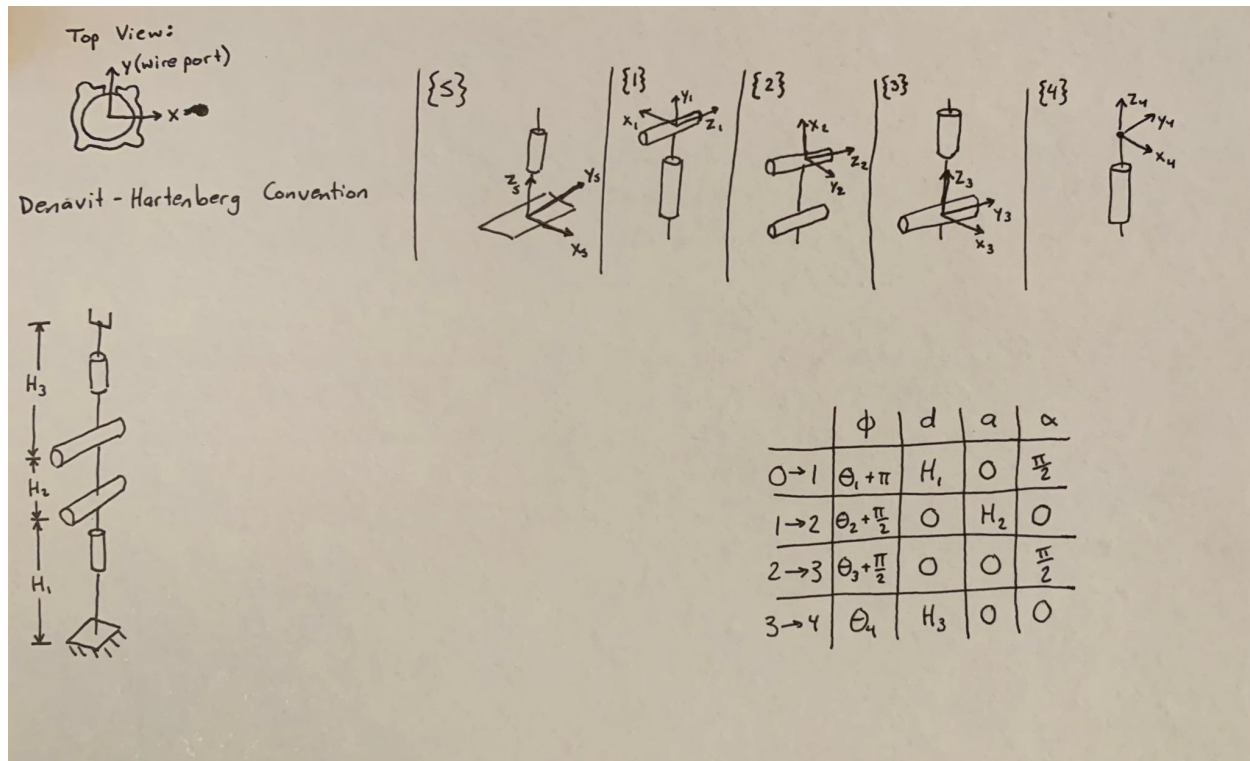 Top View:
Y (wire port)
X
Denavit-Hartenberg Convention
{S}
Zs
Ys
Xs
{1}
X1
Y1
Z1
{2}
X2
Z2
Y2
{3}
Z3
Y3
X3
{4}
Z4
Y4
X4
H3
H2
H1
ϕ d a α
0→1 θ1+π H1 0 π/2
1→2 θ2+π/2 0 H2 0
2→3 θ3+π/2 0 0 π/2
3→4 θ4 H3 0 0